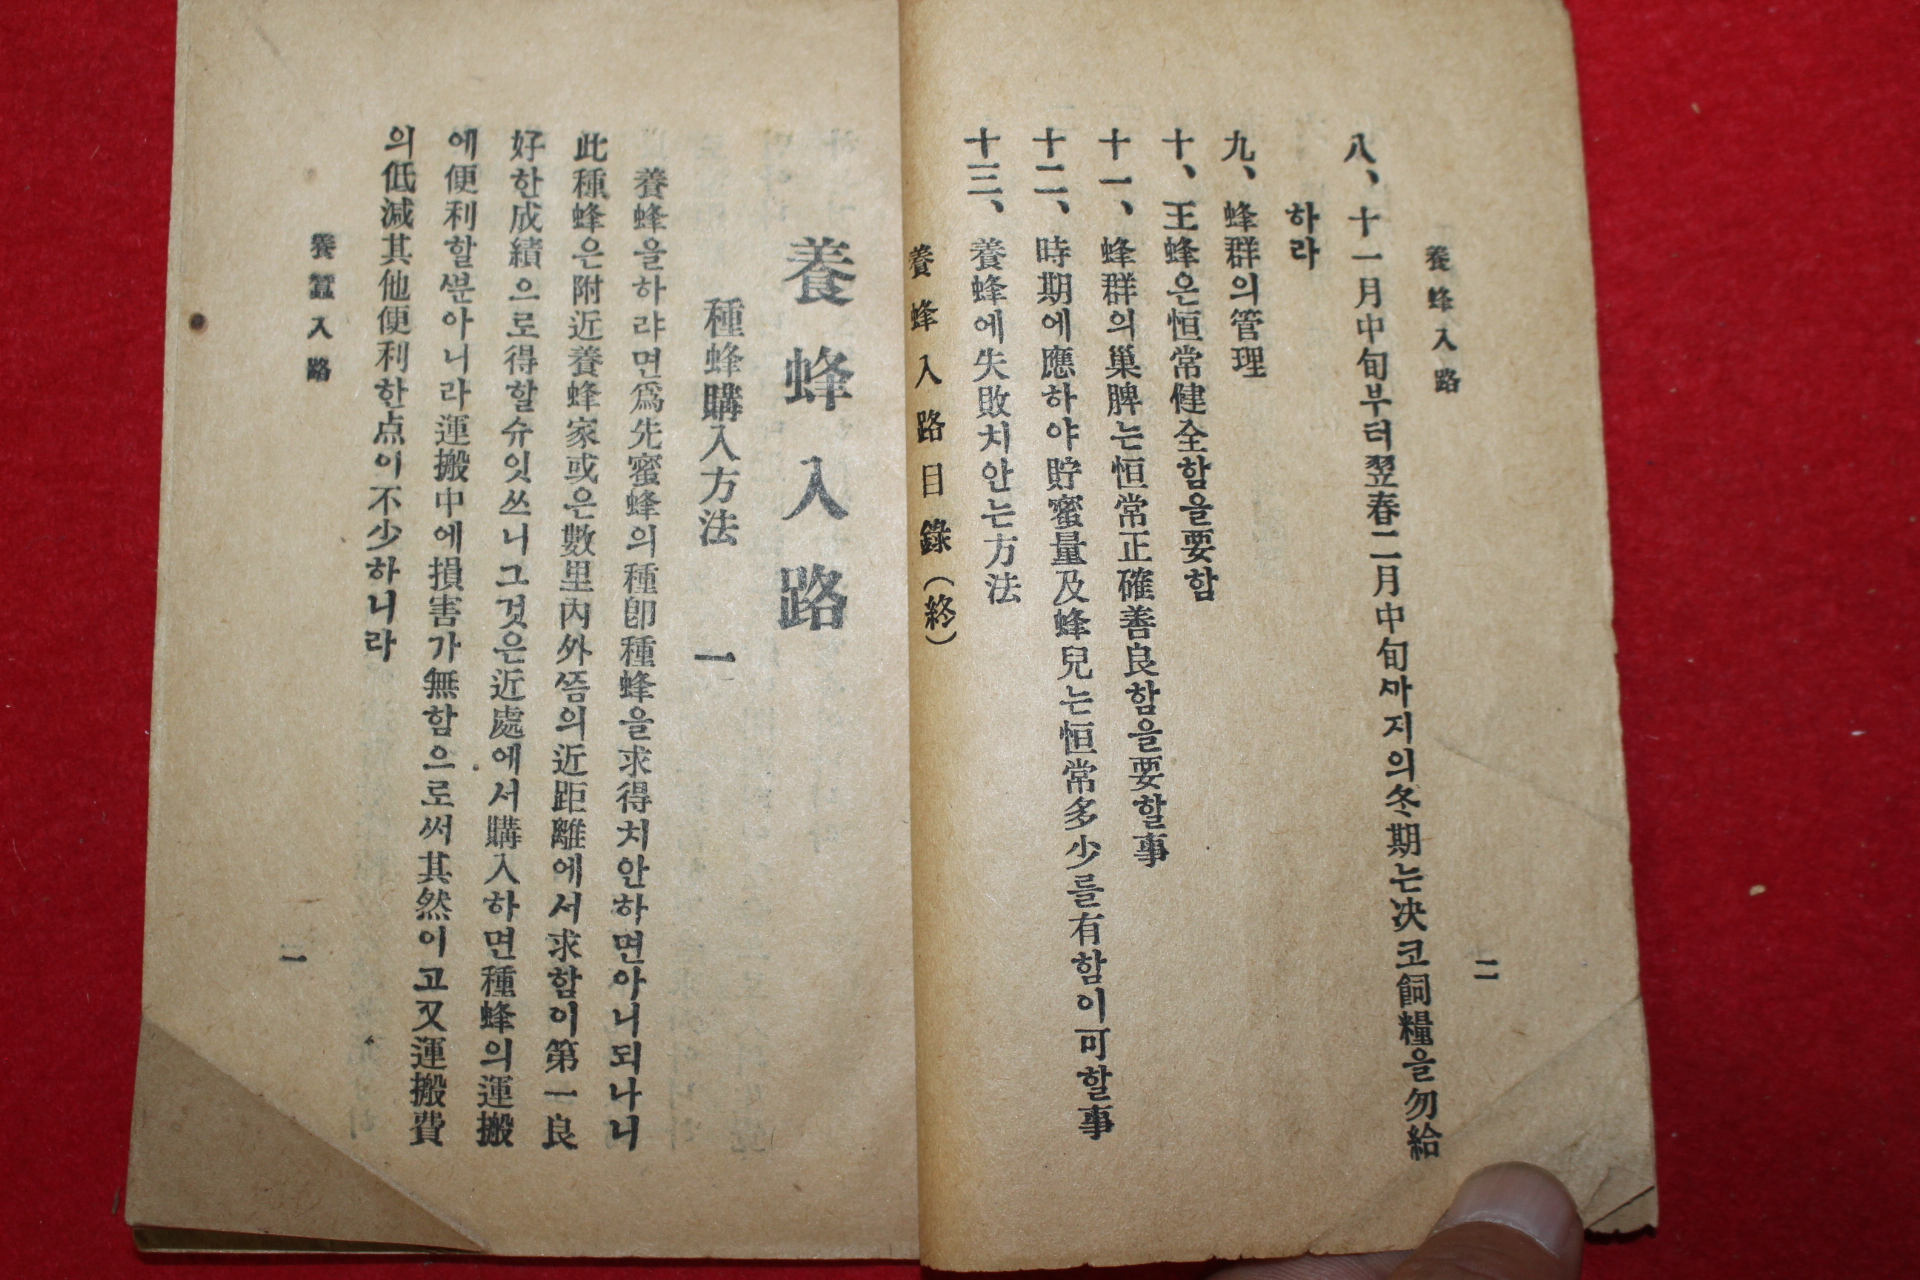 養蜂入路
二
八、十一月中旬부터翌春二月中旬ᄭᅡ지의冬期는决코飼糧을勿給
하라
九、蜂群의管理
十、王蜂은恒常健全함을要함
十一、蜂群의巢脾는恒常正確善良함을要할事
十二、時期에應하야貯蜜量及蜂兒는恒常多少를有함이可할事
十三、養蜂에失敗치안는方法
養蜂入路目錄(終)
養蜂入路
種蜂購入方法 一
養蜂을하랴면爲先蜜蜂의種卽種蜂을求得치안하면아니되나니
此種蜂은附近養蜂家或은數里內外ᄶᅳᆷ의近距離에서求함이第一良
好한成績으로得할슈잇쓰니그것은近處에서購入하면種蜂의運搬
에便利할ᄲᅮᆫ아니라運搬中에損害가無함으로써其然이고又運搬費
의低減其他便利한点이不少하니라
養蠶入路
一